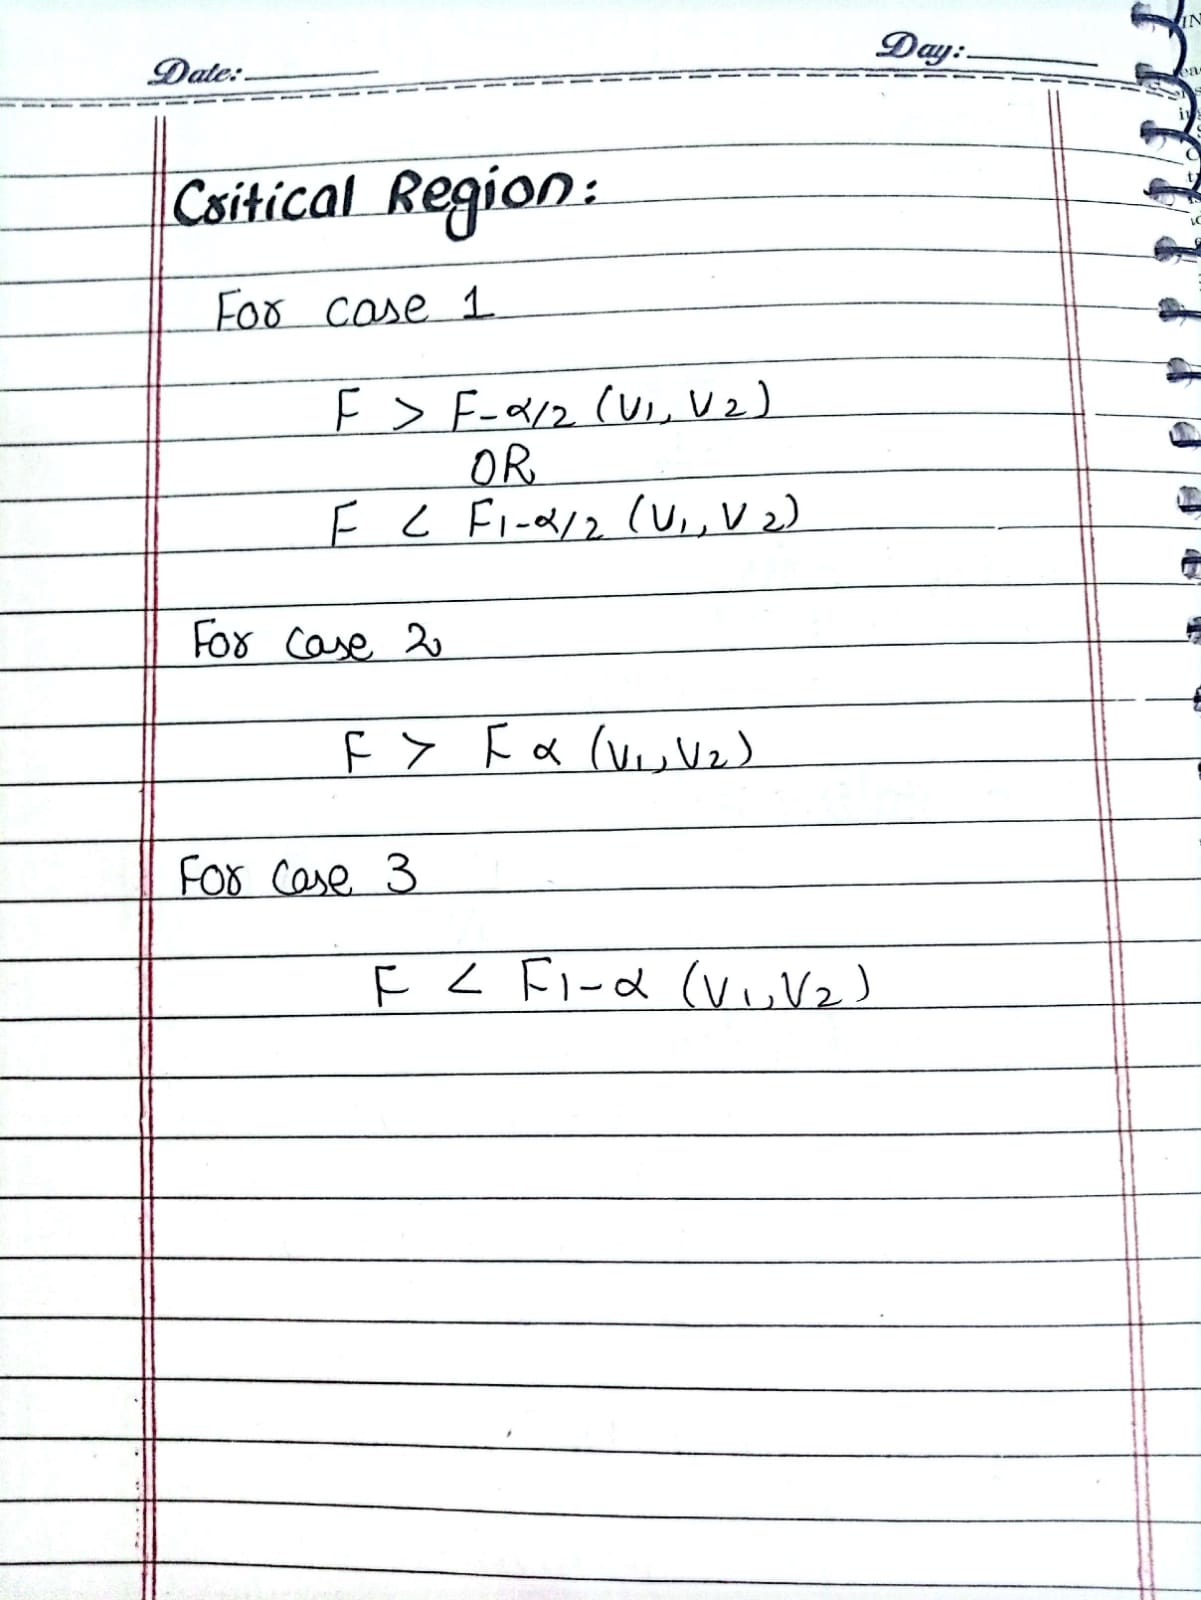 Date:
Day:
Critical Region:
For case 1
F > F-α/2 (V1, V2)
OR
F < F1-α/2 (V1, V2)
For Case 2
F > Fα (V1, V2)
For Case 3
F < F1-α (V1, V2)